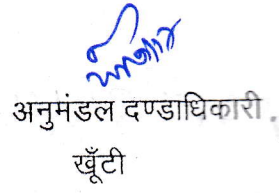 अनुमंडल दण्डाधिकारी.
खूँटी